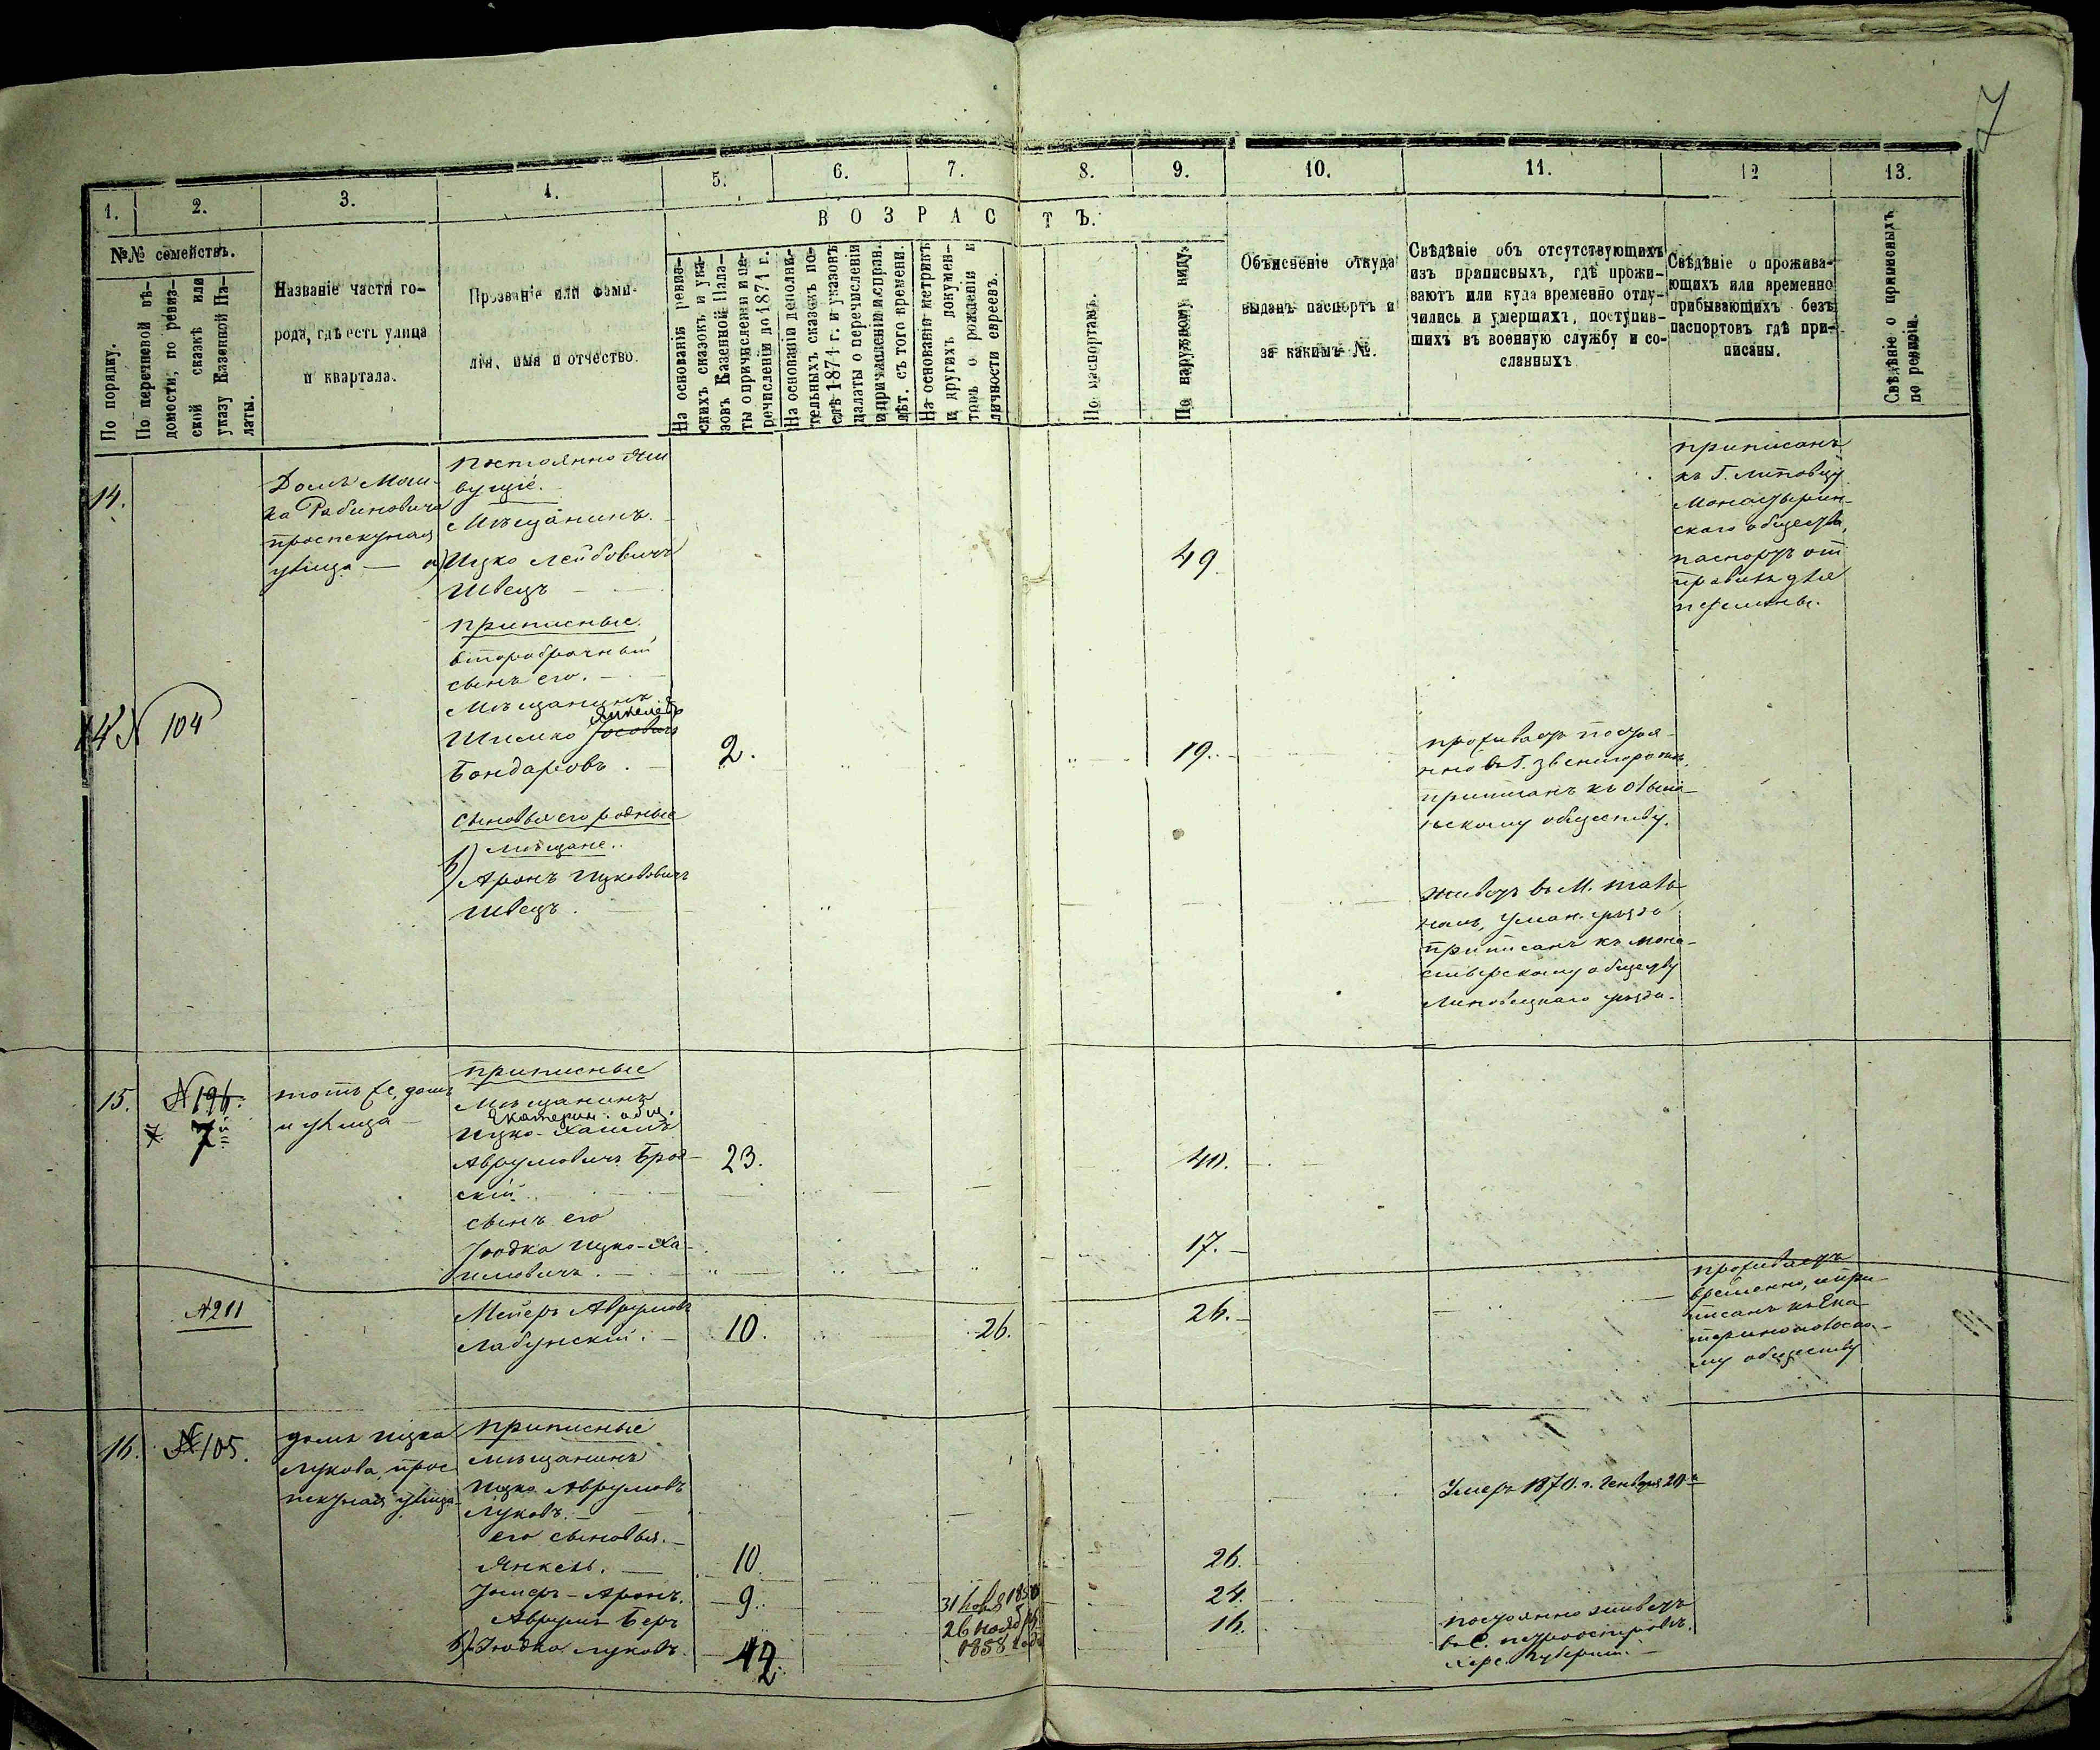 7
1.
2.
3.
4.
5.
6.
7.
8.
9.
10.
11.
12
13.
ВОЗРАСТЪ.
№№ семействъ.
По порядку.
По перечневой вѣ-
домости, по ревиз-
ской сказкѣ или
указу Казенной Па-
латы.
Названіе части го-
рода, гдѣ есть улица
и квартала.
Прозваніе или фами-
лія, имя и отчество.
На основаніи ревиз-
скихъ сказокъ и ука-
зовъ Казенной Пала-
ты о причисленіи и пе-
речисленіи до 1871 г.
На основаніи дополни-
тельныхъ сказокъ по-
слѣ 1871 г. и указовъ
палаты о перечисленіи
и причисленіи исправ.
лѣт. съ того времени.
На основаніи метрикъ
и другихъ докумен-
товъ о рожденіи и
личности евреевъ.
По паспортамъ.
По наружному виду.
Объясненіе откуда
выданъ паспортъ и
за какимъ №.
Свѣдѣніе объ отсутствующихъ
изъ приписныхъ, гдѣ прожи-
ваютъ или куда временно отлу-
чились и умершихъ, поступив-
шихъ въ военную службу и со-
сланныхъ
Свѣдѣніе о прожива-
ющихъ или временно
прибывающихъ безъ
паспортовъ гдѣ при-
писаны.
Свѣдѣніе о приписныхъ
по ревизіи.
14.
Домъ Мош-
ка Рабиновича
проспектная
улица
Постоянно жи
вущіе.
Мѣщанинъ.
а) Ицко Лейбовичъ
Швецъ
49
приписанъ
къ Г. Липовцу
Монастырин-
скаго общества,
паспортъ от
правилъ для
перемѣны.
приписные.
второбрачный
сынъ его.
14 № 104
Мѣщанинъ
Янкелевъ
Шимко Іосовичъ
Бондаровъ.
2.
19.
проживаетъ постоя-
нно въ Г. Звенигородкѣ,
приписанъ къ
обществу.
Сыновья его родные
мѣщане.
Аронъ Ицковичъ
Швецъ.
живетъ въ М. Таль-
номъ, Уман. уѣзда
приписанъ къ мона-
стырскому обществу
Липовецкаго уѣзда.
15.
№ 196.
7й
тотъ же домъ
и улица
приписные
Мѣщанинъ
Екатерин. общ.
Ицко-Хаимъ
Аврумовичъ Брод-
скій
23.
40.
сынъ его
Іоодка Ицко-Ха-
имовичъ.
17.
№ 211
Мейеръ Аврумовъ
Лабунскій.
10.
26.
26.
проживаетъ
временно, при-
писанъ къ Ека
теринопольско-
му обществу
16.
№ 105.
домъ Ицка
Лукова, прос
пектная улица
приписные
мѣщанинъ
Ицко Аврумовъ
Луковъ.
Умеръ 1870. г. Генваря 20
его сыновья.
Янкель.
10.
26.
Іомеръ-Аронъ.
9.
24.
Аврумъ Беръ
26 ноября
1858 года
16.
Іодко Луковъ.
12
постоянно живетъ
въ С. Петроостровѣ.
Херс. Губерніи.